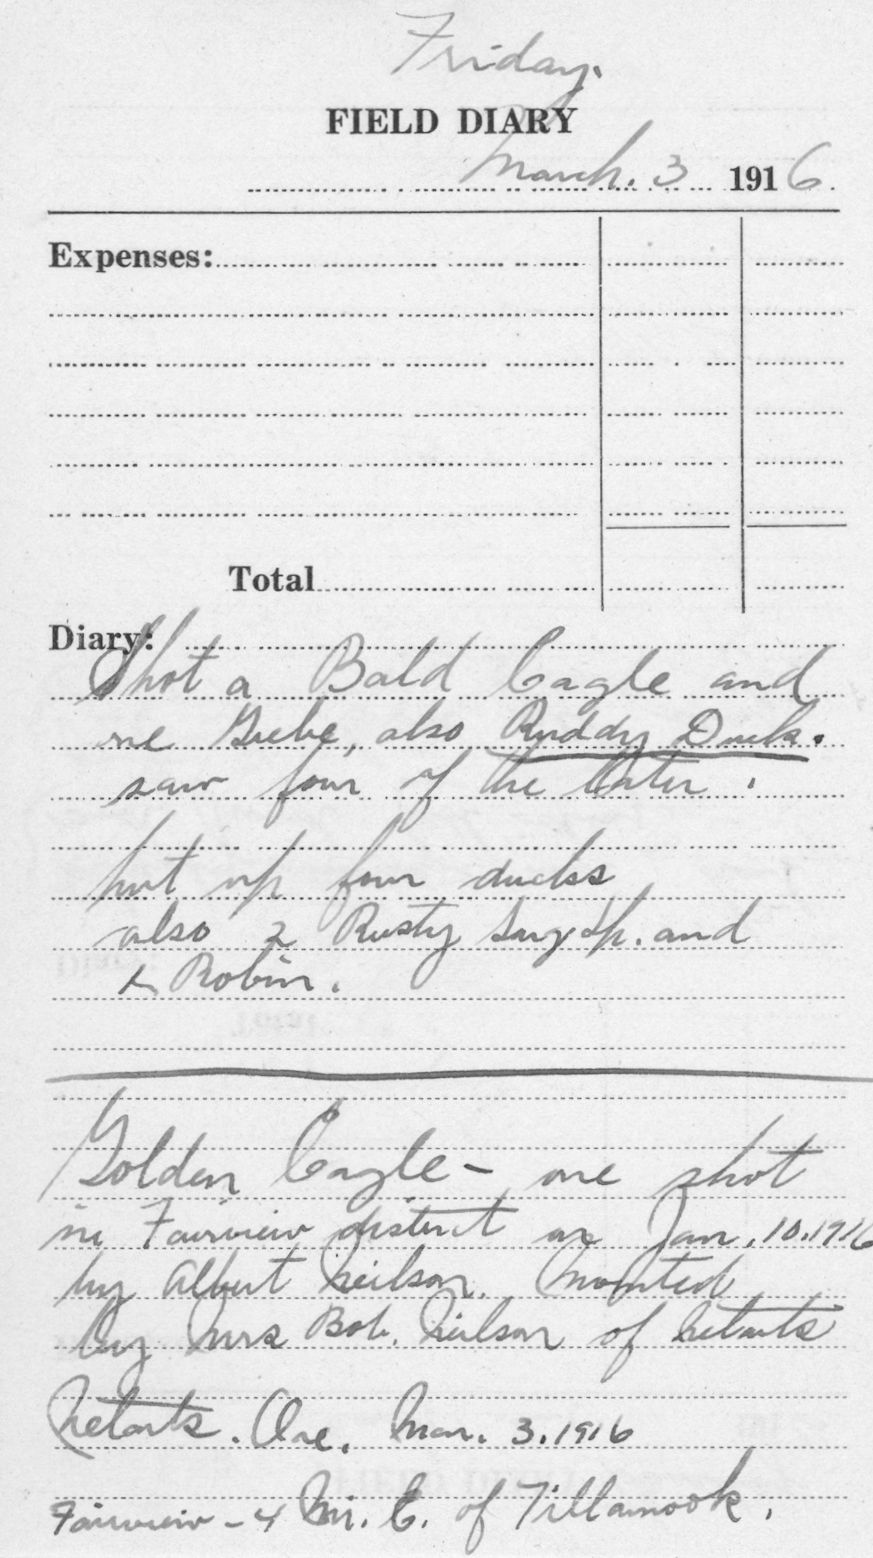 Friday.
FIELD DIARY
March. 3 1916.
Expenses:
Total
Diary:
Shot a Bald Eagle and
one Grebe, also Ruddy Duck.
saw four of the later.
put up four ducks
also 2 Rusty Song Sp. and
Robin.
Golden Eagle - one shot
in Fairview district on Jan. 10. 1916
by Albert Neilson. Mounted
by Mrs Bob. Neilson of Netarts
Netarts. Ore. Mar. 3. 1916
Fairview - 4 Mi. E. of Tillamook.